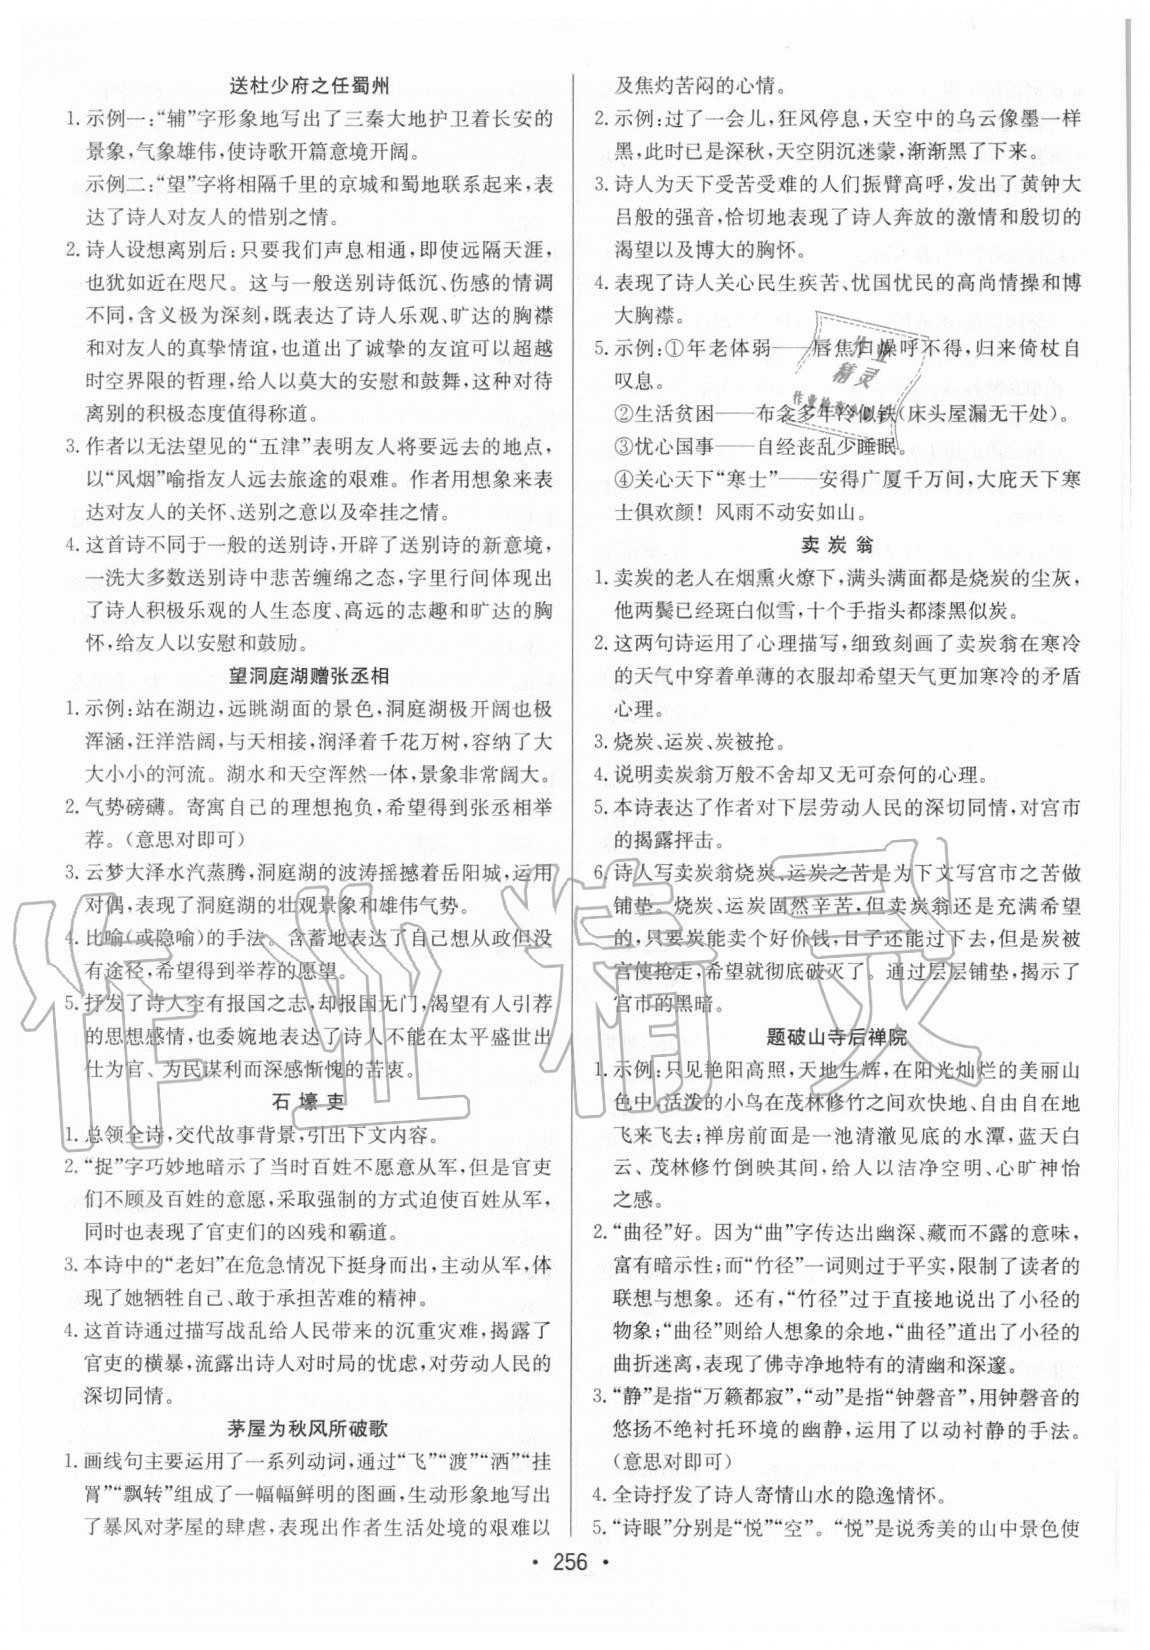 送杜少府之任蜀州
1. 示例一:“辅”字形象地写出了三秦大地护卫着长安的
景象,气象雄伟,使诗歌开篇意境开阔。
示例二:“望”字将相隔千里的京城和蜀地联系起来,表
达了诗人对友人的惜别之情。
2. 诗人设想离别后:只要我们声息相通,即使远隔天涯,
也犹如近在咫尺。这与一般送别诗低沉、伤感的情调
不同,含义极为深刻,既表达了诗人乐观、旷达的胸襟
和对友人的真挚情谊,也道出了诚挚的友谊可以超越
时空界限的哲理,给人以莫大的安慰和鼓舞,这种对待
离别的积极态度值得称道。
3. 作者以无法望见的“五津”表明友人将要远去的地点,
以“风烟”喻指友人远去旅途的艰难。作者用想象来表
达对友人的关怀、送别之意以及牵挂之情。
4. 这首诗不同于一般的送别诗,开辟了送别诗的新意境,
一洗大多数送别诗中悲苦缠绵之态,字里行间体现出
了诗人积极乐观的人生态度、高远的志趣和旷达的胸
怀,给友人以安慰和鼓励。
望洞庭湖赠张丞相
1. 示例:站在湖边,远眺湖面的景色,洞庭湖极开阔也极
浑涵,汪洋浩阔,与天相接,润泽着千花万树,容纳了大
大小小的河流。湖水和天空浑然一体,景象非常阔大。
2. 气势磅礴。寄寓自己的理想抱负,希望得到张丞相举
荐。(意思对即可)
3. 云梦大泽水汽蒸腾,洞庭湖的波涛摇撼着岳阳城,运用
对偶,表现了洞庭湖的壮观景象和雄伟气势。
4. 比喻(或隐喻)的手法。含蓄地表达了自己想从政但没
有途径,希望得到举荐的愿望。
5. 抒发了诗人空有报国之志,却报国无门,渴望有人引荐
的思想感情,也委婉地表达了诗人不能在太平盛世出
仕为官、为民谋利而深感惭愧的苦衷。
石 壕 吏
1. 总领全诗,交代故事背景,引出下文内容。
2. “捉”字巧妙地暗示了当时百姓不愿意从军,但是官吏
们不顾及百姓的意愿,采取强制的方式迫使百姓从军,
同时也表现了官吏们的凶残和霸道。
3. 本诗中的“老妇”在危急情况下挺身而出,主动从军,体
现了她牺牲自己、敢于承担苦难的精神。
4. 这首诗通过描写战乱给人民带来的沉重灾难,揭露了
官吏的横暴,流露出诗人对时局的忧虑,对劳动人民的
深切同情。
茅屋为秋风所破歌
1. 画线句主要运用了一系列动词,通过“飞”“渡”“洒”“挂
罥”“飘转”组成了一幅幅鲜明的图画,生动形象地写出
了暴风对茅屋的肆虐,表现出作者生活处境的艰难以
及焦灼苦闷的心情。
2. 示例:过了一会儿,狂风停息,天空中的乌云像墨一样
黑,此时已是深秋,天空阴沉迷蒙,渐渐黑了下来。
3. 诗人为天下受苦受难的人们振臂高呼,发出了黄钟大
吕般的强音,恰切地表现了诗人奔放的激情和殷切的
渴望以及博大的胸怀。
4. 表现了诗人关心民生疾苦、忧国忧民的高尚情操和博
大胸襟。
5. 示例:①年老体弱——唇焦口燥呼不得,归来倚杖自
叹息。
②生活贫困——布衾多年冷似铁(床头屋漏无干处)。
③忧心国事——自经丧乱少睡眠。
④关心天下“寒士”——安得广厦千万间,大庇天下寒
士俱欢颜!风雨不动安如山。
卖 炭 翁
1. 卖炭的老人在烟熏火燎下,满头满面都是烧炭的尘灰,
他两鬓已经斑白似雪,十个手指头都漆黑似炭。
2. 这两句诗运用了心理描写,细致刻画了卖炭翁在寒冷
的天气中穿着单薄的衣服却希望天气更加寒冷的矛盾
心理。
3. 烧炭、运炭、炭被抢。
4. 说明卖炭翁万般不舍却又无可奈何的心理。
5. 本诗表达了作者对下层劳动人民的深切同情,对宫市
的揭露抨击。
6. 诗人写卖炭翁烧炭、运炭之苦是为下文写宫市之苦做
铺垫。烧炭、运炭固然辛苦,但卖炭翁还是充满希望
的,只要炭能卖个好价钱,日子还能过下去,但是炭被
宫使抢走,希望就彻底破灭了。通过层层铺垫,揭示了
宫市的黑暗。
题破山寺后禅院
1. 示例:只见艳阳高照,天地生辉,在阳光灿烂的美丽山
色中,活泼的小鸟在茂林修竹之间欢快地、自由自在地
飞来飞去;禅房前面是一池清澈见底的水潭,蓝天白
云、茂林修竹倒映其间,给人以洁净空明、心旷神怡
之感。
2. “曲径”好。因为“曲”字传达出幽深、藏而不露的意味,
富有暗示性;而“竹径”一词则过于平实,限制了读者的
联想与想象。还有,“竹径”过于直接地说出了小径的
物象;“曲径”则给人想象的余地,“曲径”道出了小径的
曲折迷离,表现了佛寺净地特有的清幽和深邃。
3. “静”是指“万籁都寂”,“动”是指“钟磬音”,用钟磬音的
悠扬不绝衬托环境的幽静,运用了以动衬静的手法。
(意思对即可)
4. 全诗抒发了诗人寄情山水的隐逸情怀。
5. “诗眼”分别是“悦”“空”。“悦”是说秀美的山中景色使
· 256 ·
作业精灵
作业
精灵